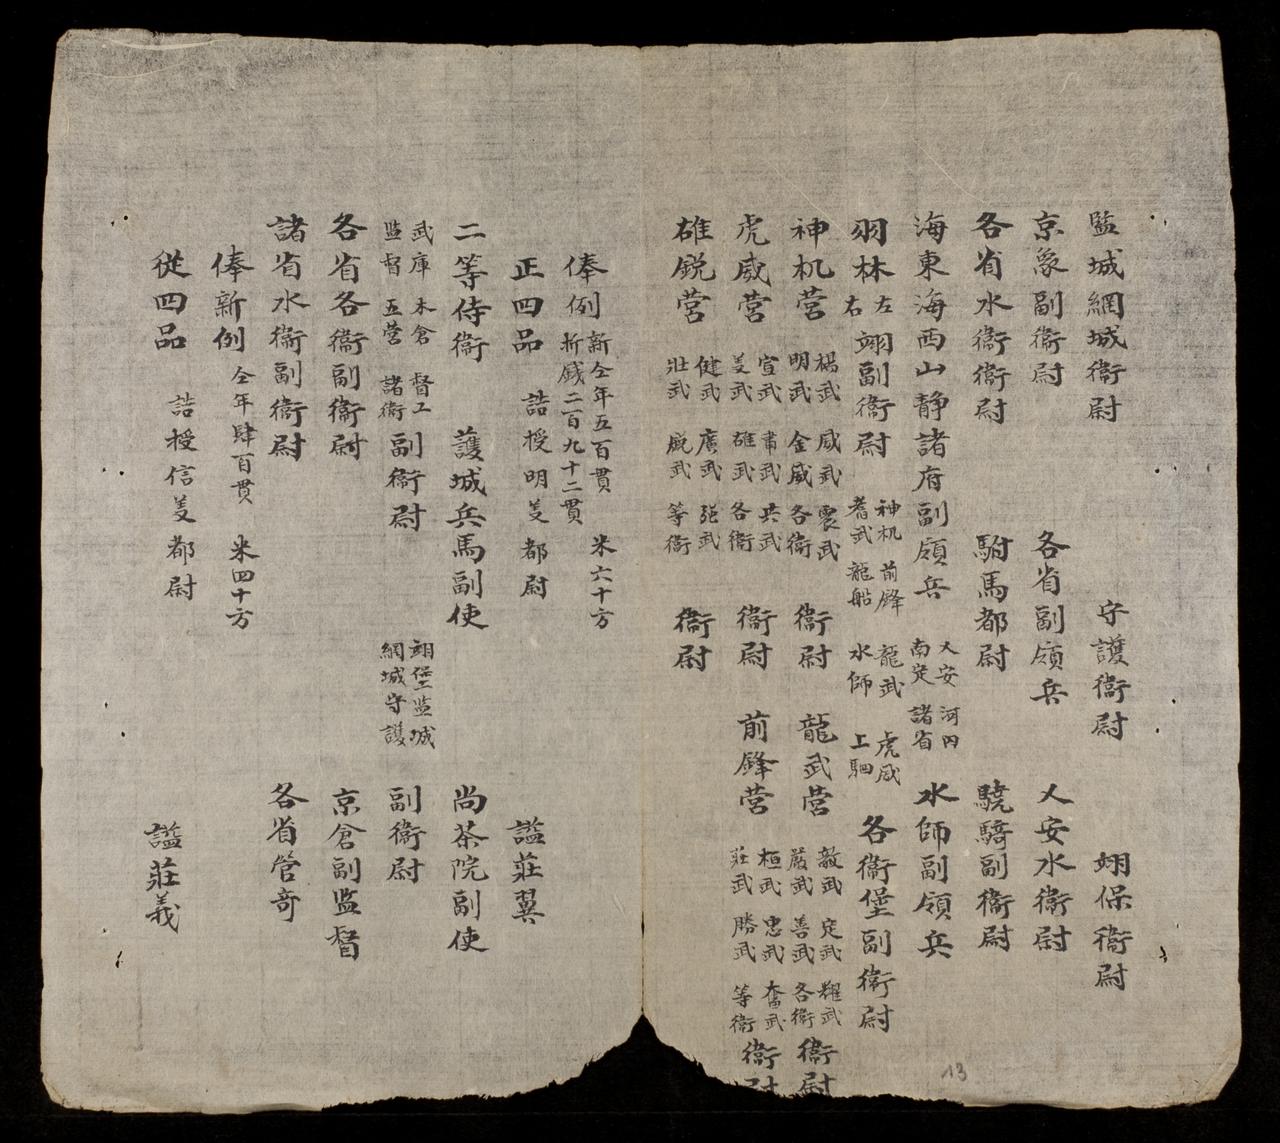 監城網城衛尉 守護衛尉 翊保衛尉
京象副衛尉 各省副領兵 乂安水衛尉
各省水衛衛尉 駙馬都尉 驍騎副衛尉
海東海西山静諸府副領兵 乂安 河内 南定 諸省 水師副領兵
羽林 左 右 翊副衛尉 神机 前鋒 龍武 虎威 耆武 龍船 水師 上駟 各衛堡副衛尉
神机营 楊武 威武 震武 明武 金威 各衛 衛尉 龍武营 毅武 定武 耀武 嚴武 善武 各衛 衛尉
虎威营 宣武 肅武 共武 美武 雄武 各衛 衛尉 前鋒营 桓武 忠武 奮武 莊武 勝武 等衛 衛尉
雄鋭营 健武 廣武 強武 壯武 威武 等衛 衛尉
俸例 新仝年五百貫 折錢二百九十二貫 米六十方
正四品 誥授明美都尉 謚莊翼
二等侍衛 護城兵馬副使 尚茶院副使
武庫 木倉 督工 監督 五营 諸衛 副衛尉 翊堡监城 網城守護 副衛尉
各省各衛副衛尉 京倉副监督
諸省水衛副衛尉 各省管奇
俸新例 仝年肆百貫 米四十方
從四品 誥授信美都尉 謚莊義
13